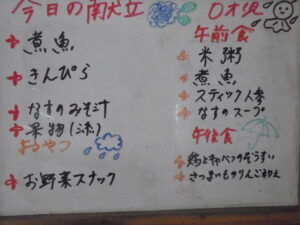 今日の献立
煮魚
きんぴら
なすのみそ汁
果物(添)
おやつ
お野菜スナック
0才児
午前食
米粥
煮魚
スティック人参
なすのスープ
午後食
鶏とキャベツのぞうすい
さつまいものりんご和え